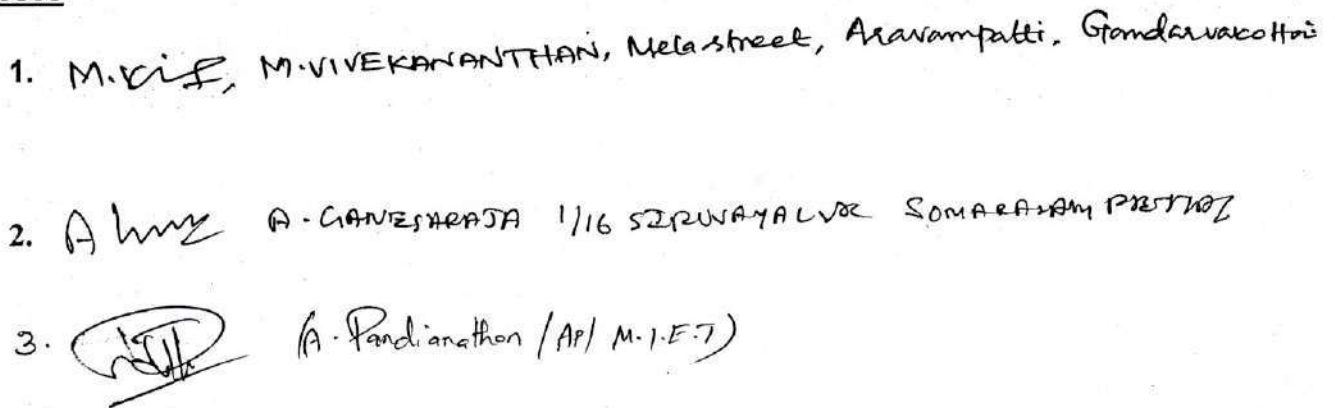 1. M. M.VIVEKANANTHAN, Melastreet, Aravampatti, Gandarvacottai
2. A A. GANESHARAJA 1/16 SIRUVAYALUR SOMARASAMPETTAI
3. (A. Pandianathan / AP/ M.I.E.T)